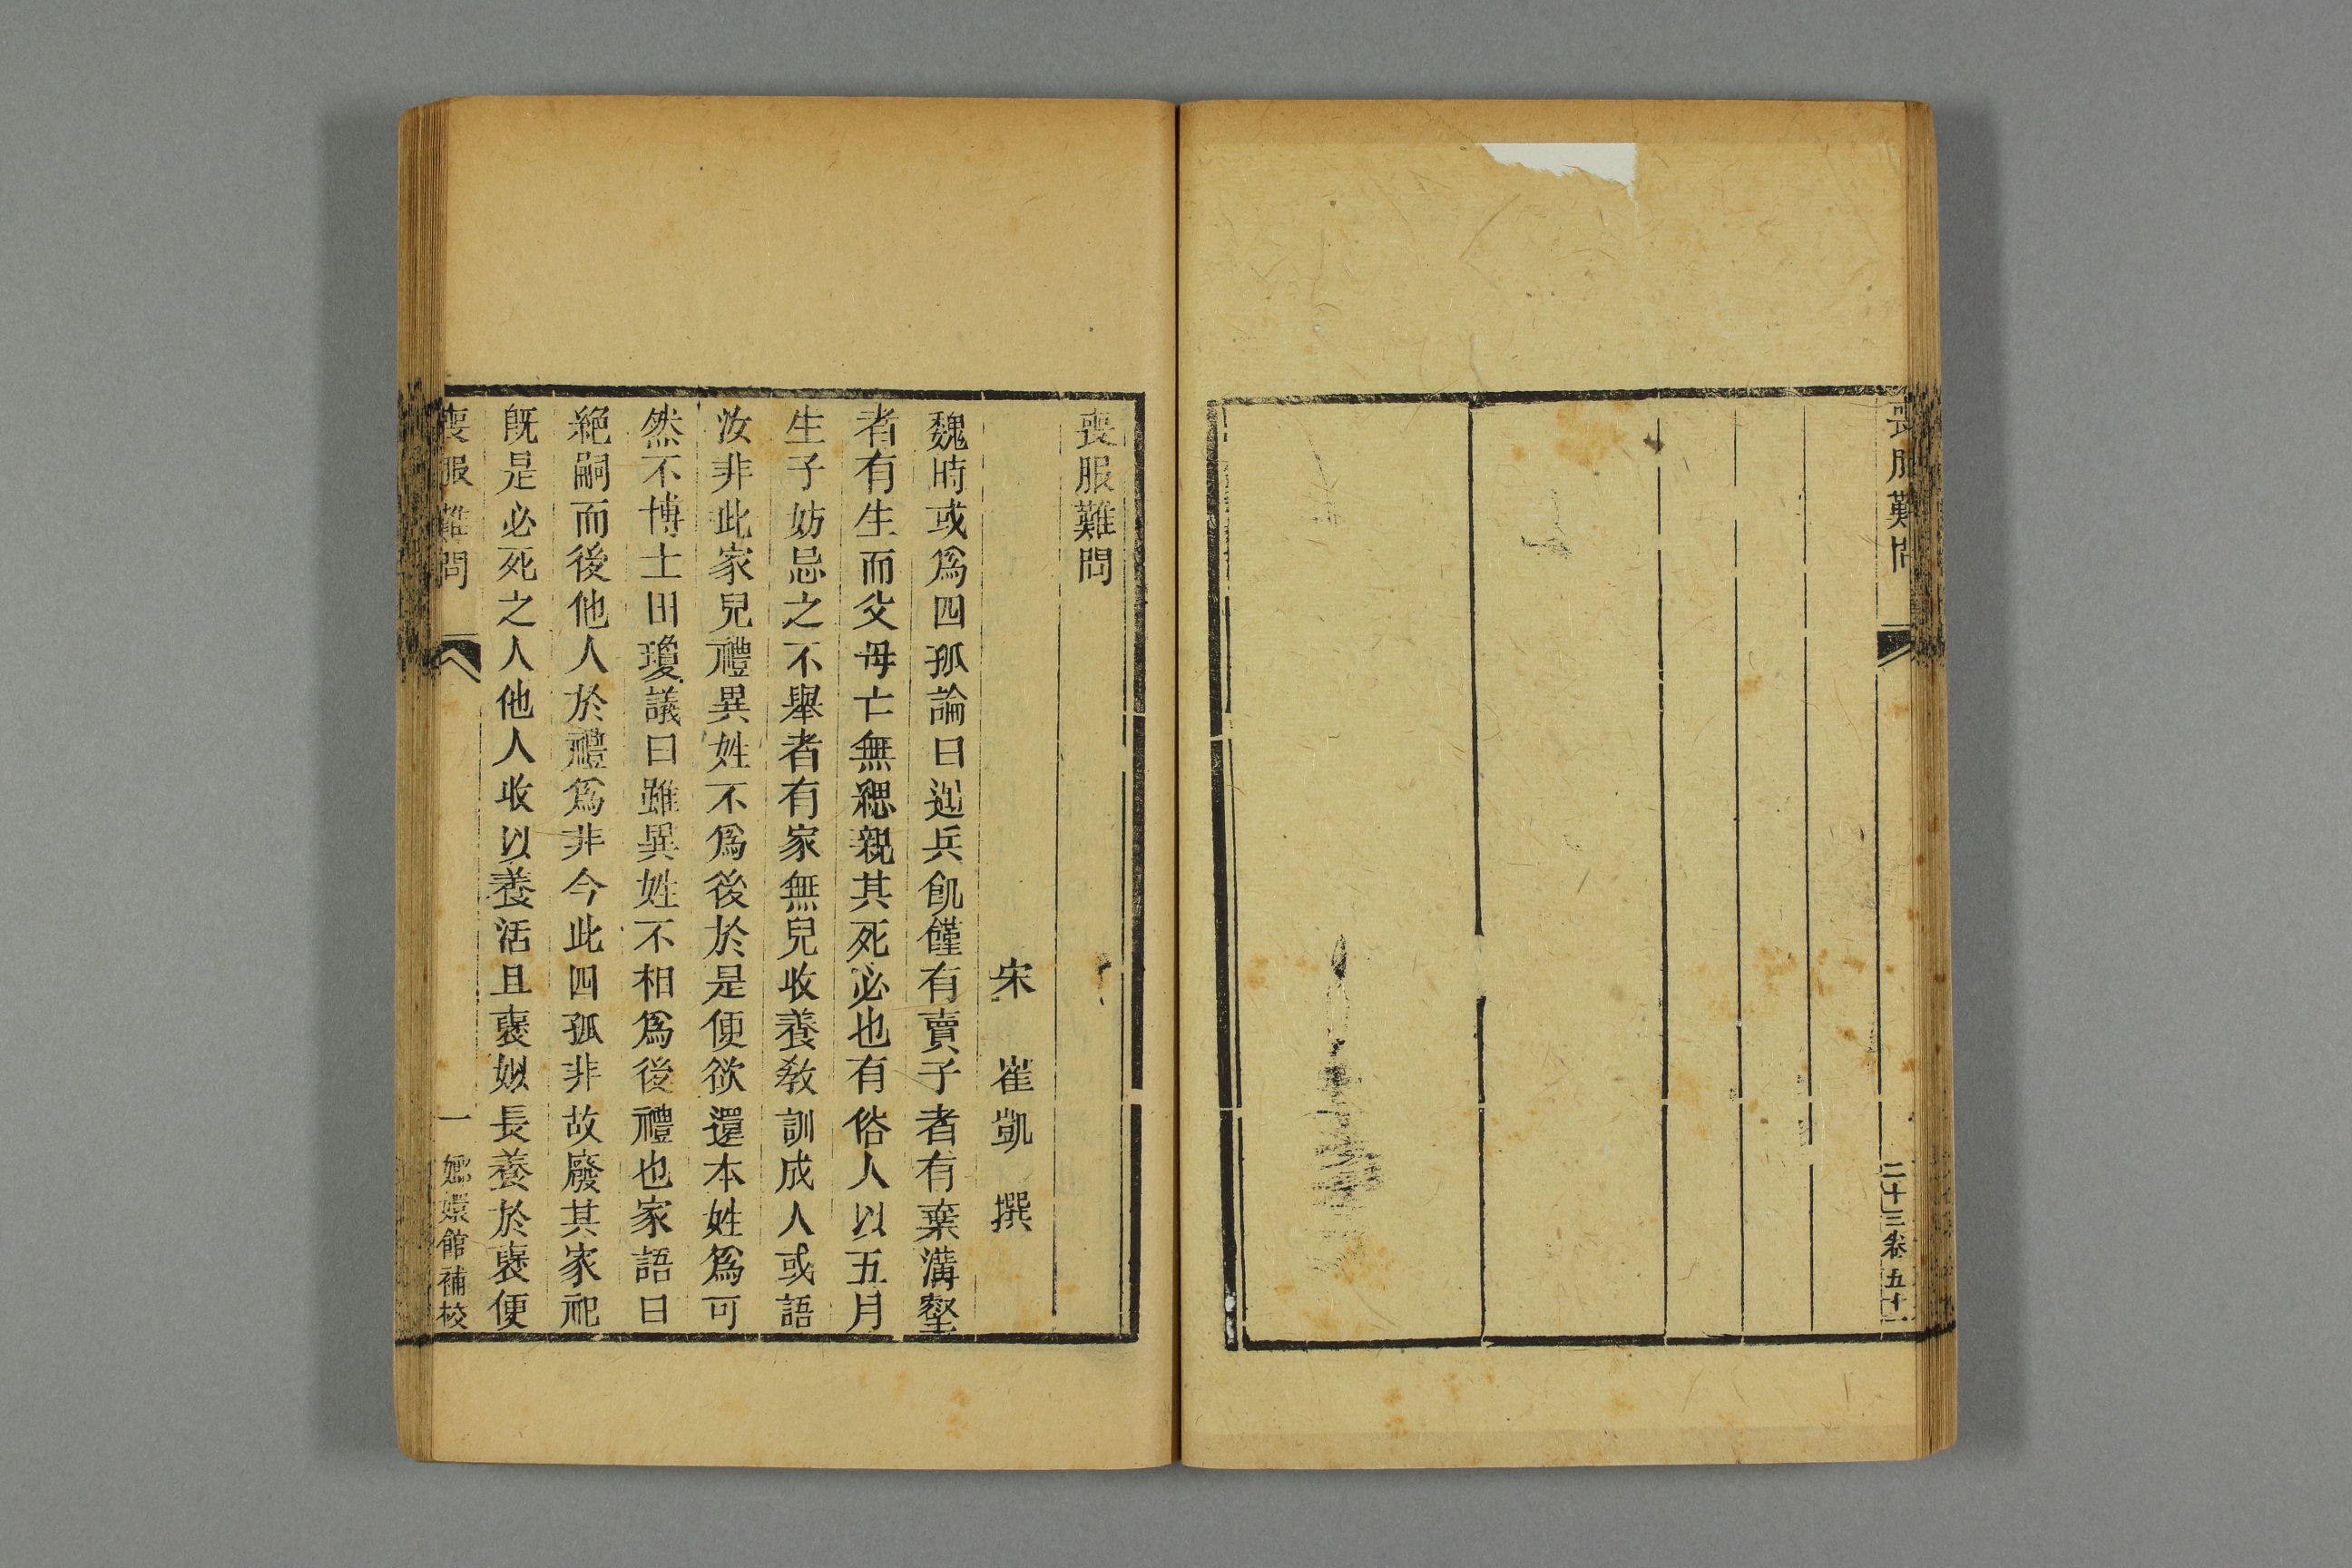 喪服難問
二十三卷五十一
喪服難問
宋 崔凱 撰
魏時或爲四孤論曰遇兵飢饉有賣子者有棄溝壑
者有生而父母亡無緦親其死必也有俗人以五月
生子妨忌之不舉者有家無兒收養教訓成人或語
汝非此家兒禮異姓不爲後於是便欲還本姓爲可
然不博士田瓊議曰雖異姓不相爲後禮也家語曰
絕嗣而後他人於禮爲非今此四孤非故廢其家祀
旣是必死之人他人收以養活且褒姒長養於褒便
喪服難問 一 嫏嬛館補校